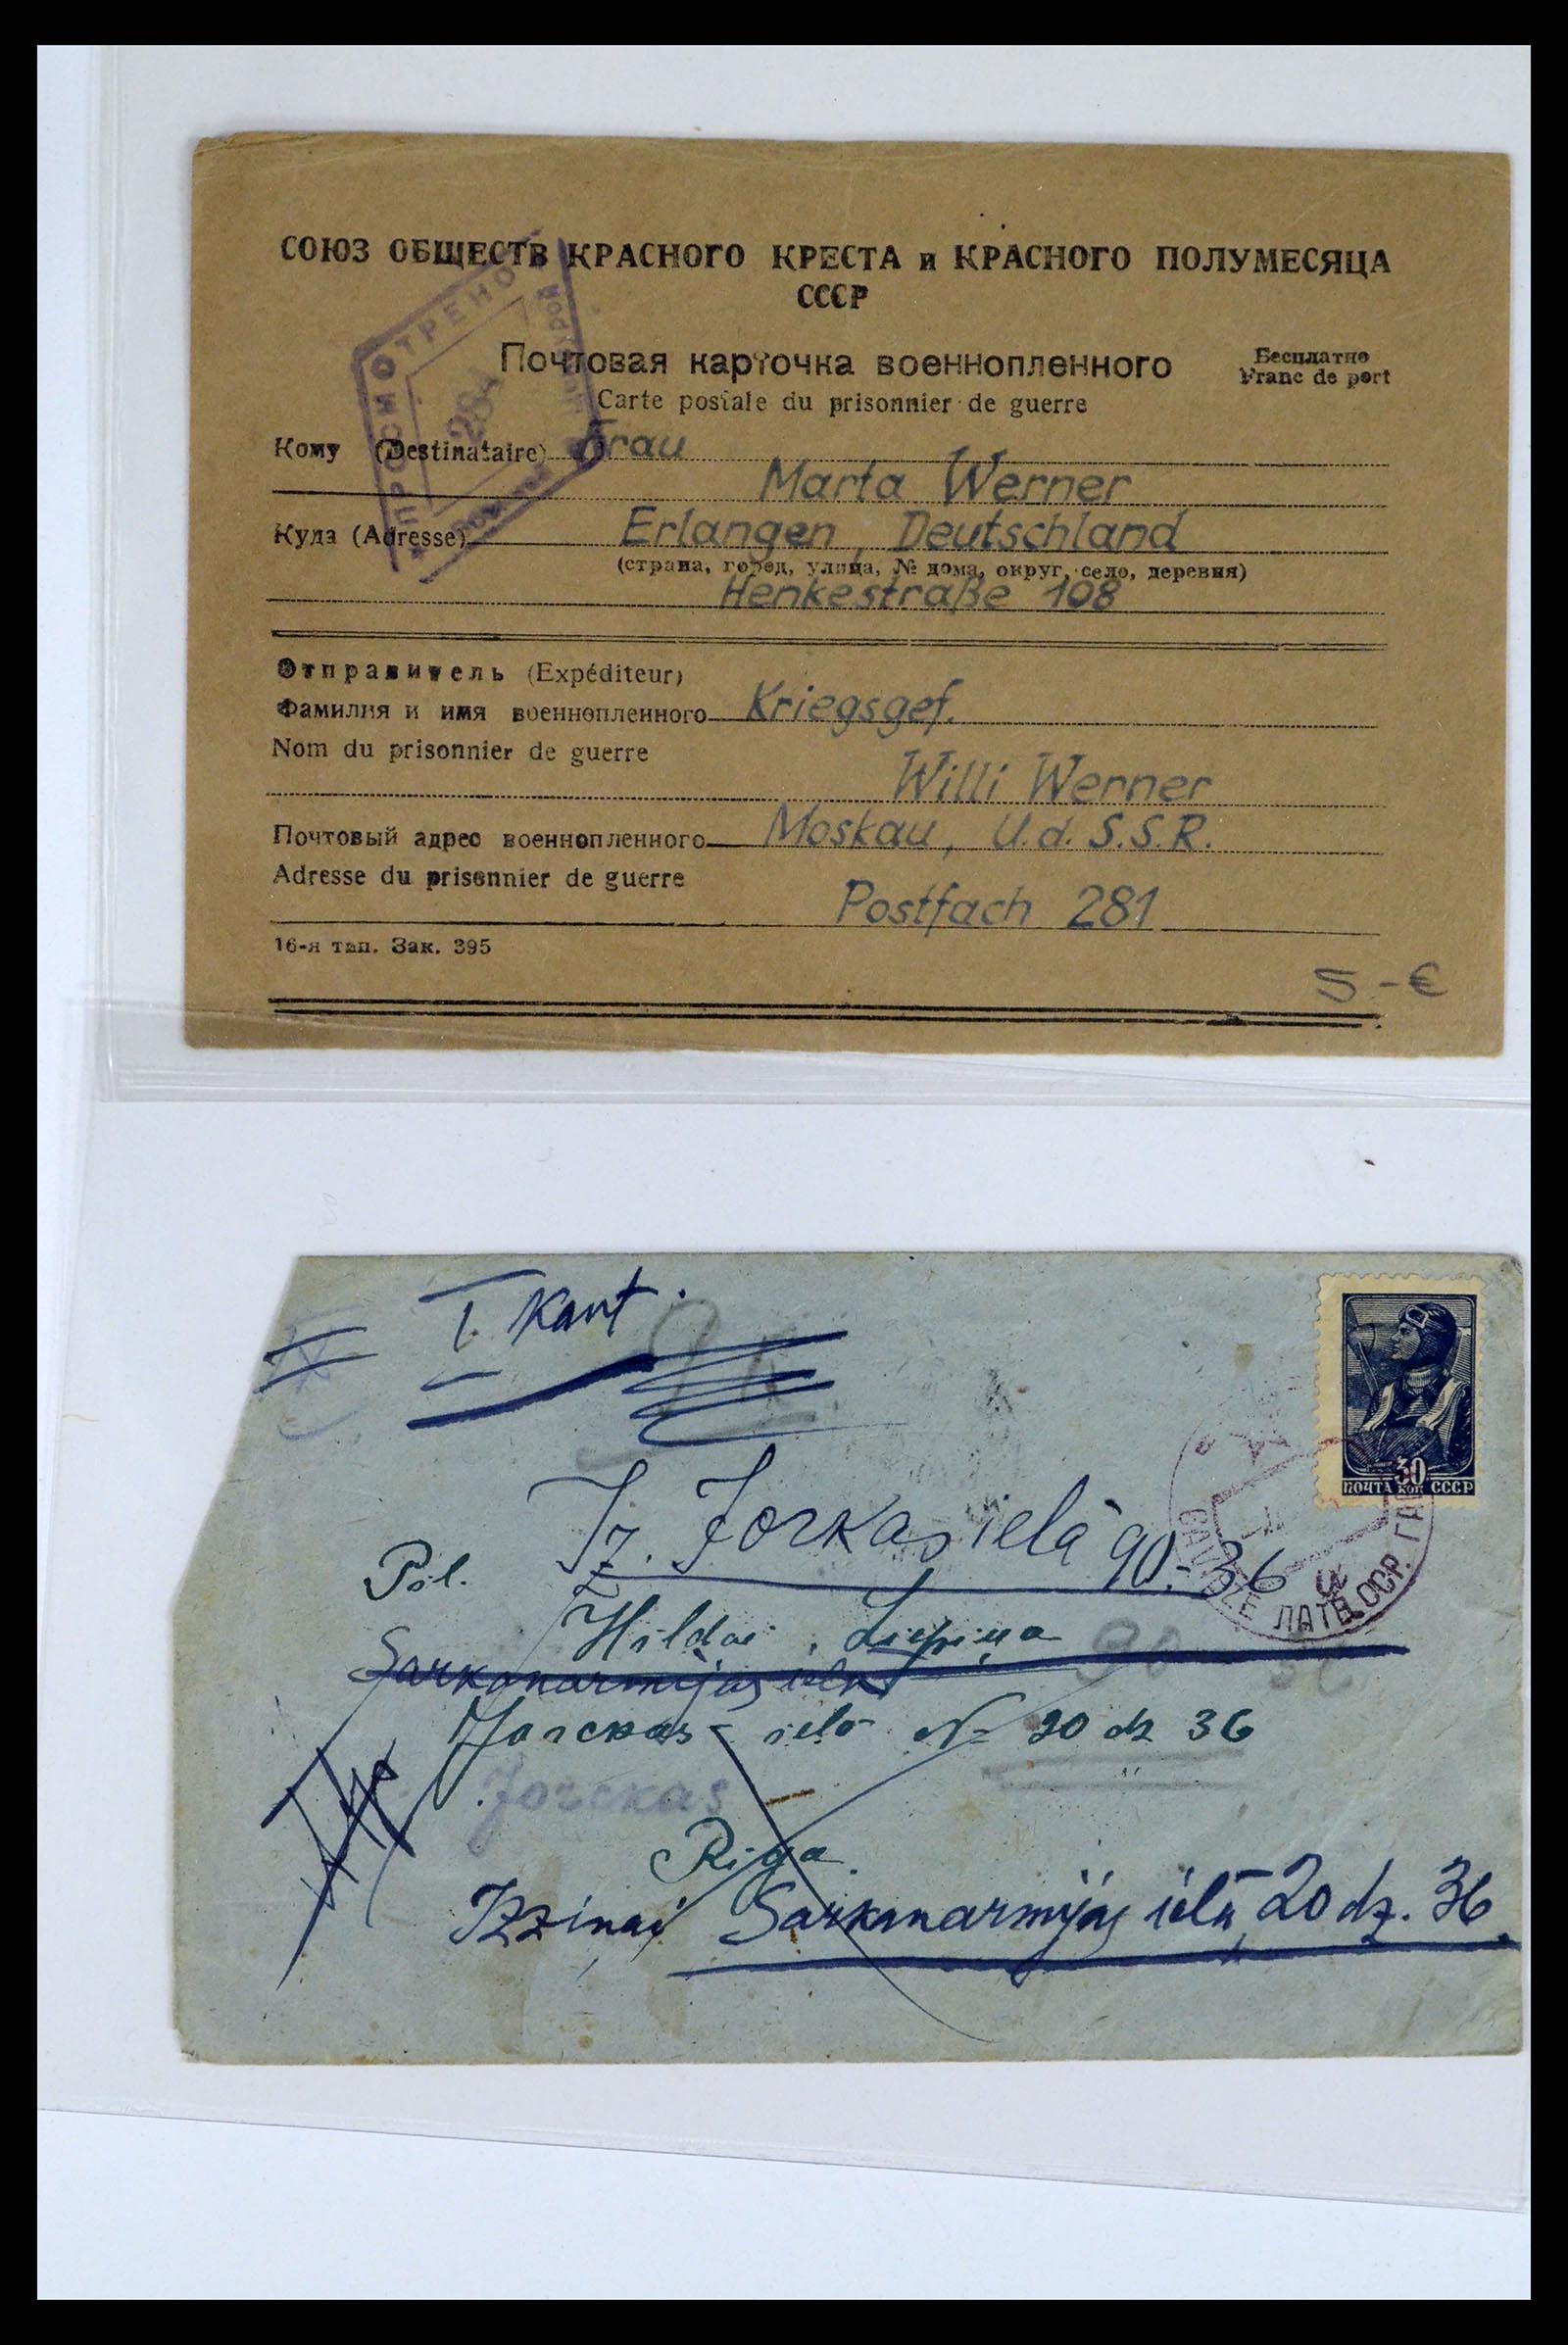 СОЮЗ ОБЩЕСТВ КРАСНОГО КРЕСТА и КРАСНОГО ПОЛУМЕСЯЦА
СССР
ПРОСМОТРЕНО
Почтовая карточка военнопленного
Бесплатно
Carte postale du prisonnier de guerre
Franc de port
Кому (Destinataire) Frau
Marta Werner
Куда (Adresse) Erlangen, Deutschland
(страна, город, улица, № дома, округ, село, деревня)
Henkestraße 108
Отправитель (Expéditeur)
Фамилия и имя военнопленного Kriegsgef.
Nom du prisonnier de guerre
Willi Werner
Почтовый адрес военнопленного Moskau, U.d.S.S.R.
Adresse du prisonnier de guerre
Postfach 281
16-я тип. Зак. 395
5 - €
30
ПОЧТА КОП СССР
ЛАТВ. ССР.
Jorkas ielā 90-36
Hildai Liepiņa
Sarkanarmijas ielā
90 36
36
Jorckas
Riga.
Sarkanarmijas ielā 20 dz. 36